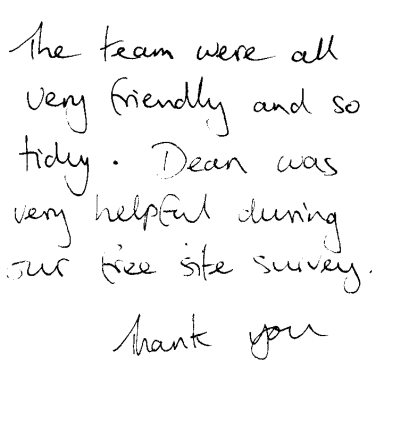 The team were all
very friendly and so
tidy. Dean was
very helpful during
our free site survey.
Thank you